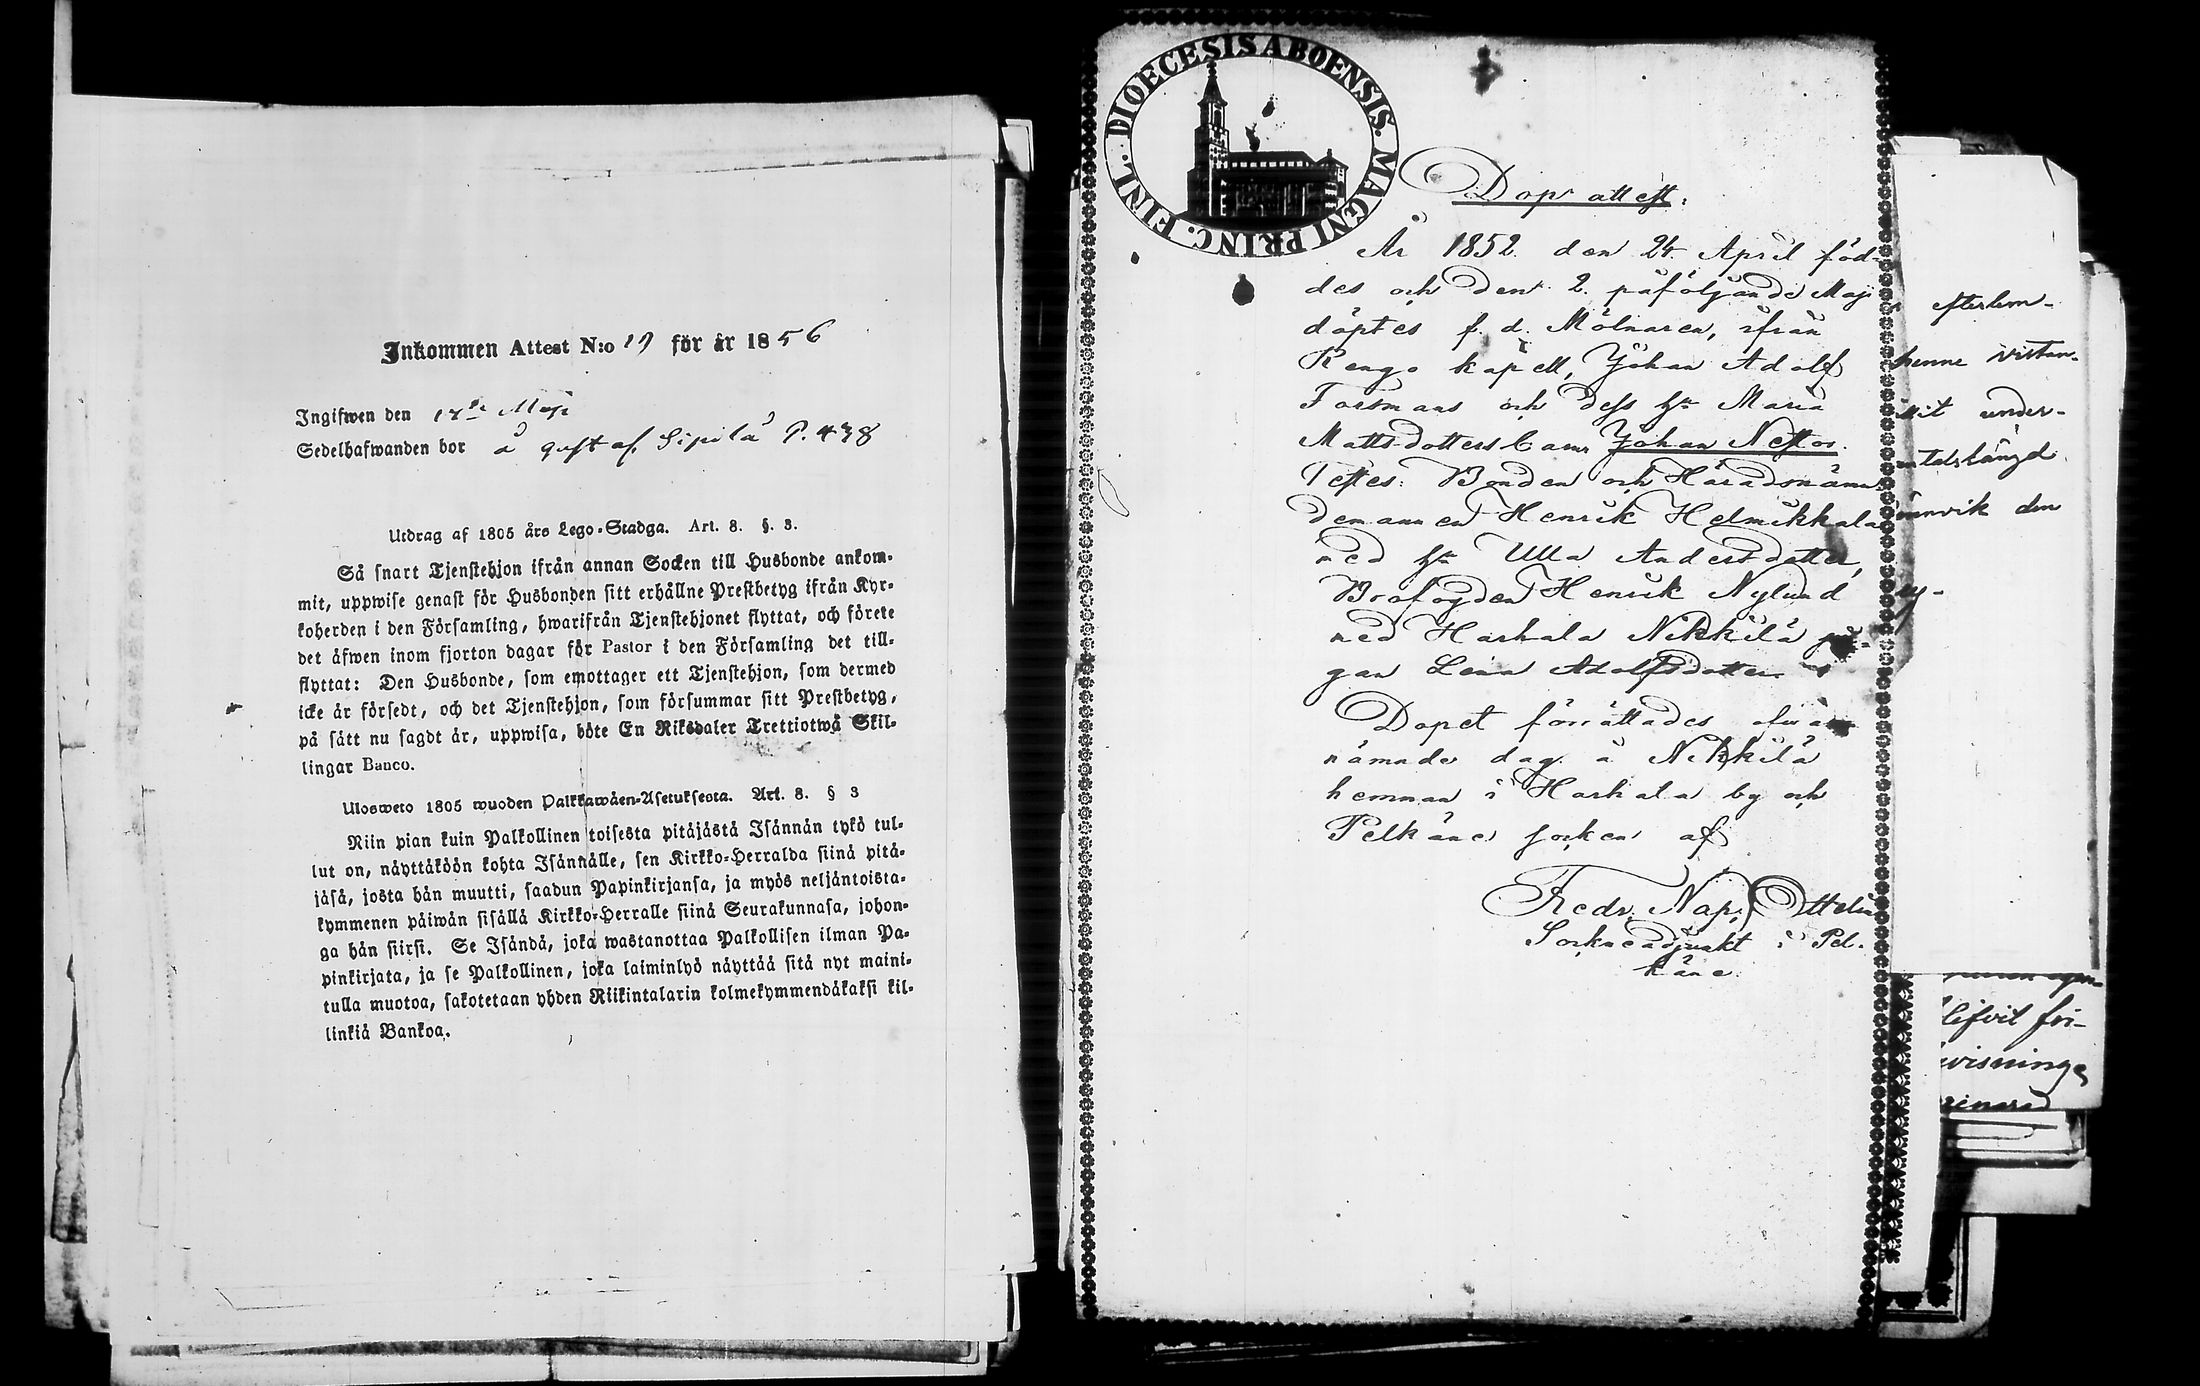 Inkommen Attest N:o 19 för år 1856
Ingifwen den 17de Maji
Sedelhafwanden bor å gust af. Sipilä P. 438
Utdrag af 1805 års Lego-Stadga. Art. 8. §. 3.
Så snart Tjenstehjon ifrån annan Socken till Husbonde ankom-
mit, uppwise genast för Husbonden sitt erhållne Prestbetyg ifrån Kyr-
koherden i den Församling, hwarifrån Tjenstehjonet flyttat, och förete
det äfwen inom fjorton dagar för Pastor i den Församling det till-
flyttat: Den Husbonde, som emottager ett Tjenstehjon, som dermed
icke är försedt, och det Tjenstehjon, som försummar sitt Prestbetyg,
på sätt nu sagdt är, uppwisa, böte En Riksdaler Trettiotwå Skil-
lingar Banco.
Ulosweto 1805 wuoden Palkkawäen-Asetuksesta. Art. 8. § 3
Niin pian kuin Palkollinen toisesta pitäjästä Isännän tykö tul-
lut on, näyttäköön kohta Isännälle, sen Kirkko-Herralda siinä pitä-
jäsä, josta hän muutti, saadun Papinkirjansa, ja myös neljäntoista-
kymmenen päiwän sisällä Kirkko-Herralle siinä Seurakunnasa, johon-
ga hän siirsi. Se Isändä, joka wastanottaa Palkollisen ilman Pa-
pinkirjata, ja se Palkollinen, joka laiminlyö näyttää sitä nyt maini-
tulla muotoa, sakotetaan yhden Riikintalarin kolmekymmendäkaksi kil-
linkiä Bankoa.
FINL. DIOECESIS ABOENSIS. MAGNI PRINC.
Dop attest.
År 1852 den 24 April föd-
des och den 2. påföljande Maji
döptes f. d. Mölnaren, ifrån
Rengo kapell, Johan Adolf
Forsmans och dess hu Maria
Mattsdotters barn Johan Nestor.
Testes: Bonden och Häradsnämn
demannen Henrik Helmikkala
med hu Ulla Andersdotter,
Brofogden Henrik Nylund
med Harhala Nikkilä pi-
gan Lena Adolfsdotter
Dopet förrättades ofwan
nämnde dag å Nikkilä
hemman i Harhala by och
Pelkäne socken af
Fredr. Nap. Ottelin
Sockneadjunkt i Pel-
käne.
efterkom-
henne vistan-
sitt under-
den
lifvit fri-
wisninge